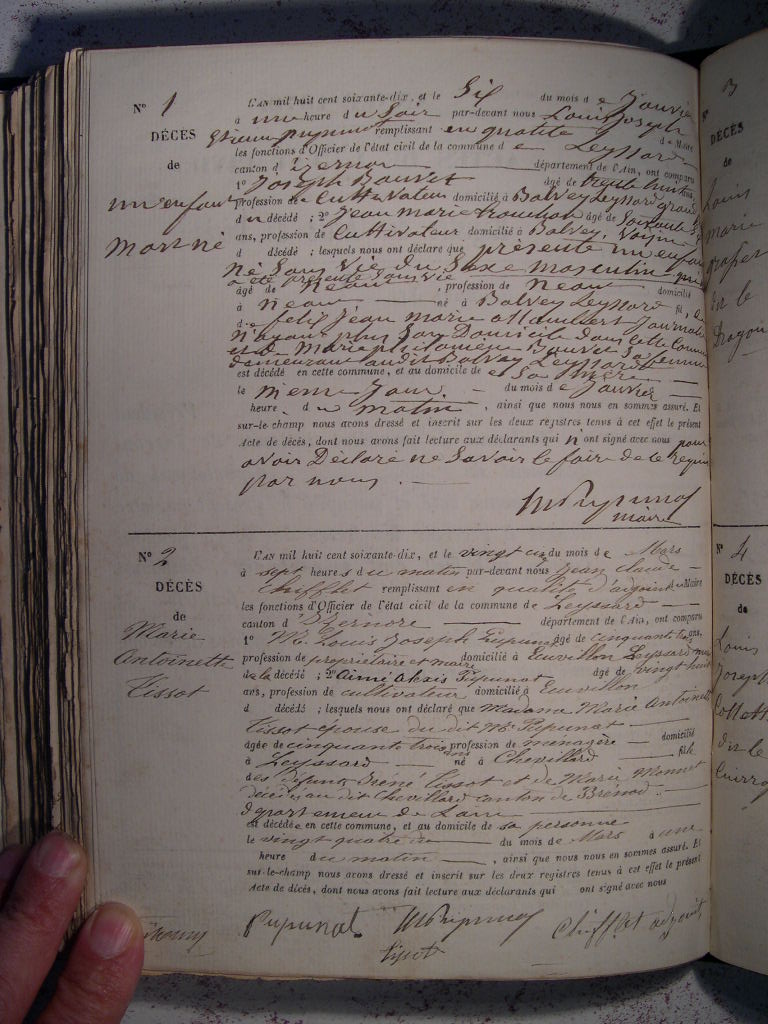 N° 1
DÉCÈS
de
un enfant
mort né
L'AN mil huit cent soixante-dix, et le Six du mois de Janvier
à une heure du Soir par-devant nous Louis Joseph
remplissant en qualité de Maire
les fonctions d'Officier de l'état civil de la commune de Leyssard
canton d'izernor département de l'Ain, ont comparu
1° Joseph Bouvet âgé de trente huit ans,
profession de Cultivateur domicilié à Bolvey Leyssard grand
d u décédé ; 2° Jean marie âgé de Soixante
ans, profession de Cultivateur domicilié à Bolvey, Voisin
d décédé ; lesquels nous ont déclaré que présente un enfant
Né Sans Vie du Sexe masculin qui
a été présenté Sans Vie
âgé de Néant , profession de Néant domicilié
à Néant né à Bolvey Leyssard fil
de felix Jean marie Journalier
n'ayant plus Son Domicile dans cette Commune
et de Marie philomene Bouvet Sa femme
demeurant audit Bolvey Leyssard
est décédé en cette commune, et au domicile de Sa mère
le meme Jour du mois de Janvier
heure du matin , ainsi que nous nous en sommes assuré. Et
sur-le-champ nous avons dressé et inscrit sur les deux registres tenus à cet effet le présent
Acte de décès, dont nous avons fait lecture aux déclarants qui n'ont signé avec nous pour
avoir Déclaré ne Savoir le faire de le Requis
par nous .
maire
N° 2
DÉCÈS
de
Marie
Antoinette
Tissot
L'AN mil huit cent soixante-dix, et le vingt cinq du mois de Mars
à sept heures du matin par-devant nous Jean Claude
Chifflet remplissant en qualité d'adjoint de Maire
les fonctions d'Officier de l'état civil de la commune de Leyssard
canton d'Izernore département de l'Ain, ont comparu
1° Mr Louis Joseph Pupunat âgé de cinquante trois ans,
profession de propriétaire et maire domicilié à Leuvillon Leyssard mari
de la décédée ; 2° Aimé Alexis Pupunat âgé de vingt huit
ans, profession de cultivateur domicilié à Leuvillon
d décédé ; lesquels nous ont déclaré que Madame Marie Antoinette
Tissot épouse du dit Mr Pupunat
âgée de cinquante trois ans profession de ménagère domicilié
à Leyssard né à Chevillard fille
des défunts Iréné Tissot et de Marie Monnet
décédés au dit Chevillard canton de Brénod
département de L'ain
est décédée en cette commune, et au domicile de sa personne
le vingt quatre du mois de Mars à une
heure du matin , ainsi que nous nous en sommes assuré. Et
sur-le-champ nous avons dressé et inscrit sur les deux registres tenus à cet effet le présent
Acte de décès, dont nous avons fait lecture aux déclarants qui ont signé avec nous
Pupunat
Chifflet adjoint
tissot
N° 3
DÉCÈS
de
Louis
marie
dit le
Dragon
N° 4
DÉCÈS
de
Louis
Joseph
dit le